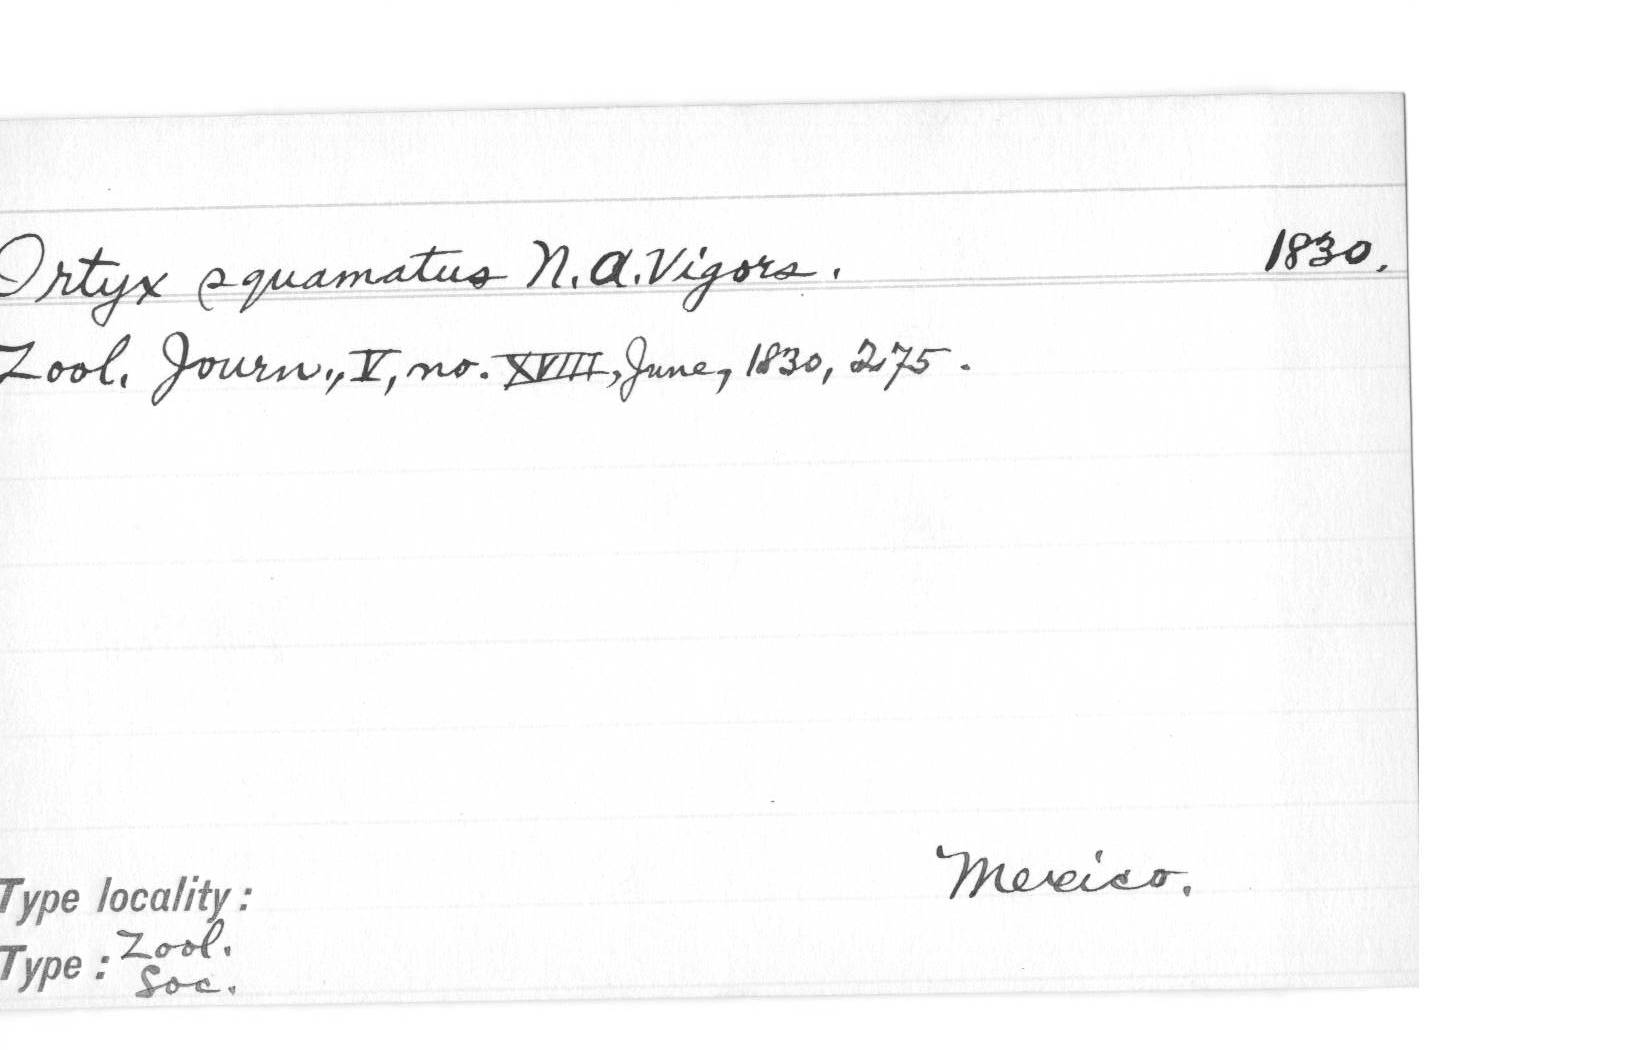 Ortyx squamatus N.A.Vigors. 1830.
Zool. Journ., V, no. XVIII, June, 1830, 275.
Mexico.
Type locality:
Type: Zool.
Soc.